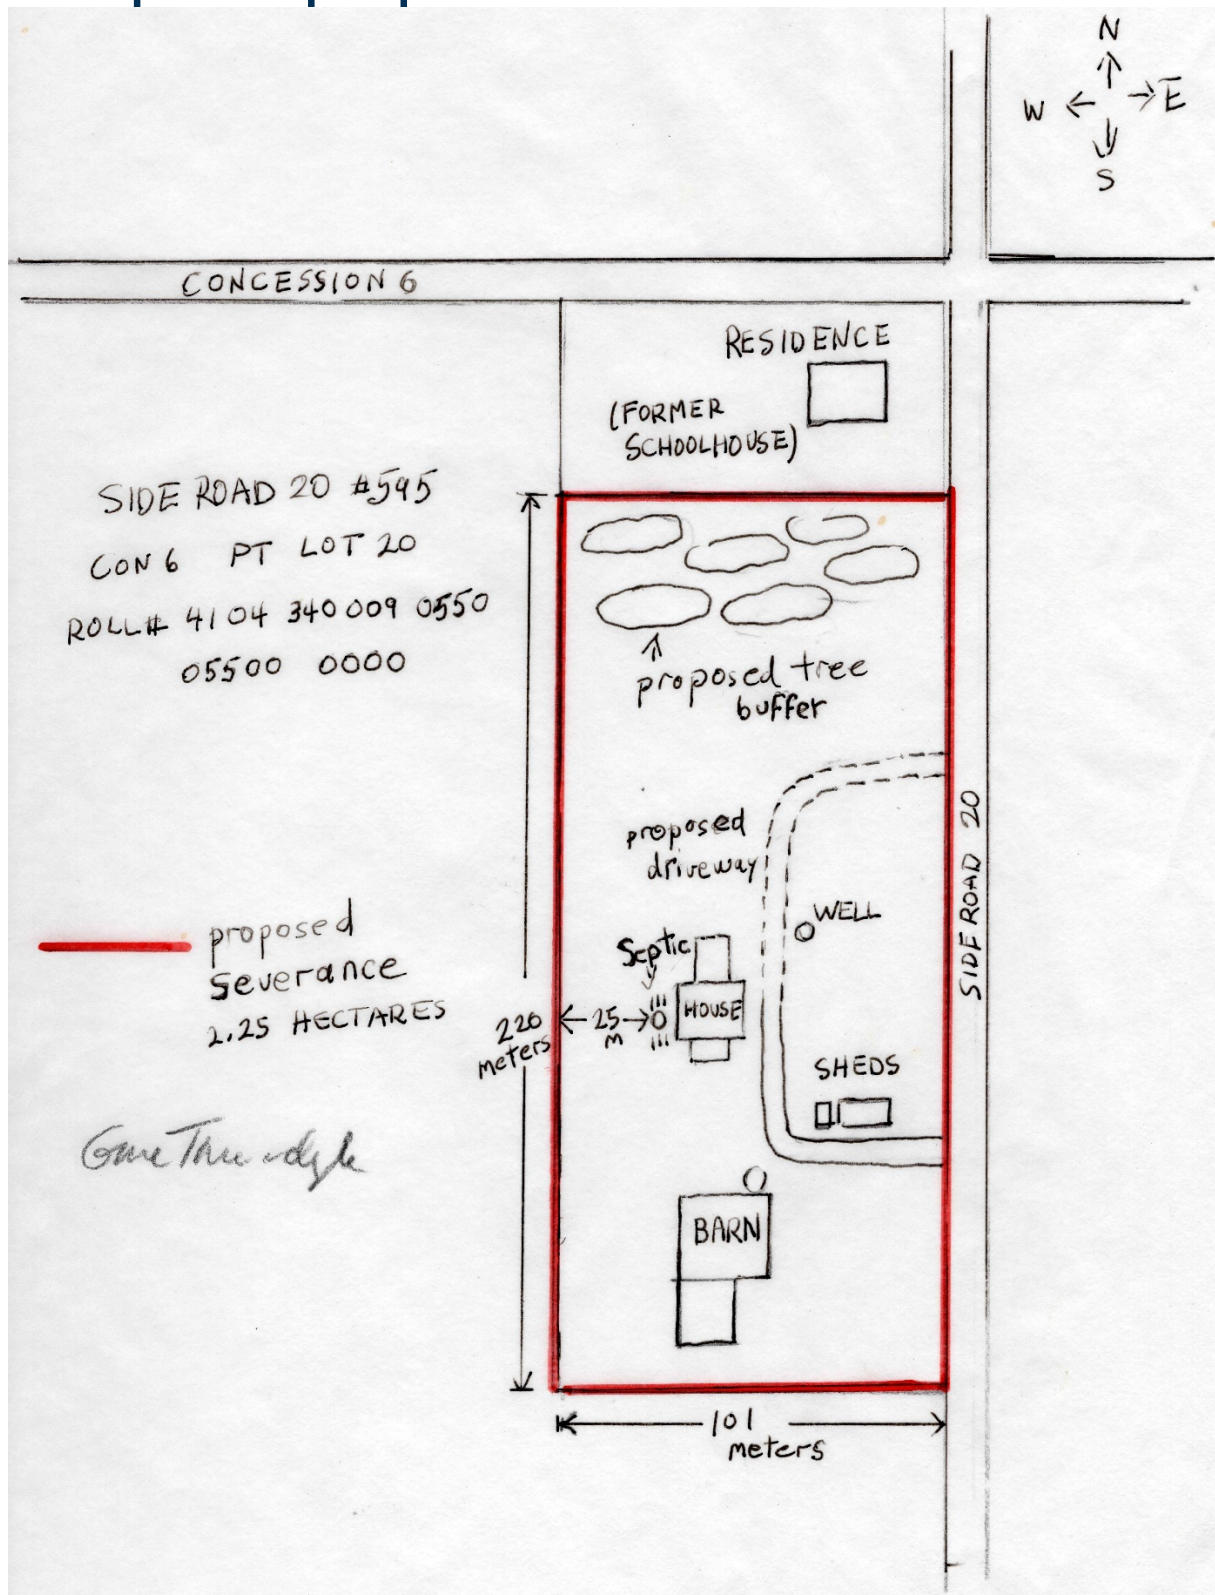 N
W E
S
CONCESSION 6
RESIDENCE
(FORMER
SCHOOLHOUSE)
SIDE ROAD 20 #595
CON 6 PT LOT 20
ROLL# 4104 340 009 0550
05500 0000
proposed tree
buffer
proposed
driveway
SIDE ROAD 20
WELL
Septic
HOUSE
proposed
severance
2.25 HECTARES
220
meters
25
M
SHEDS
BARN
101
meters